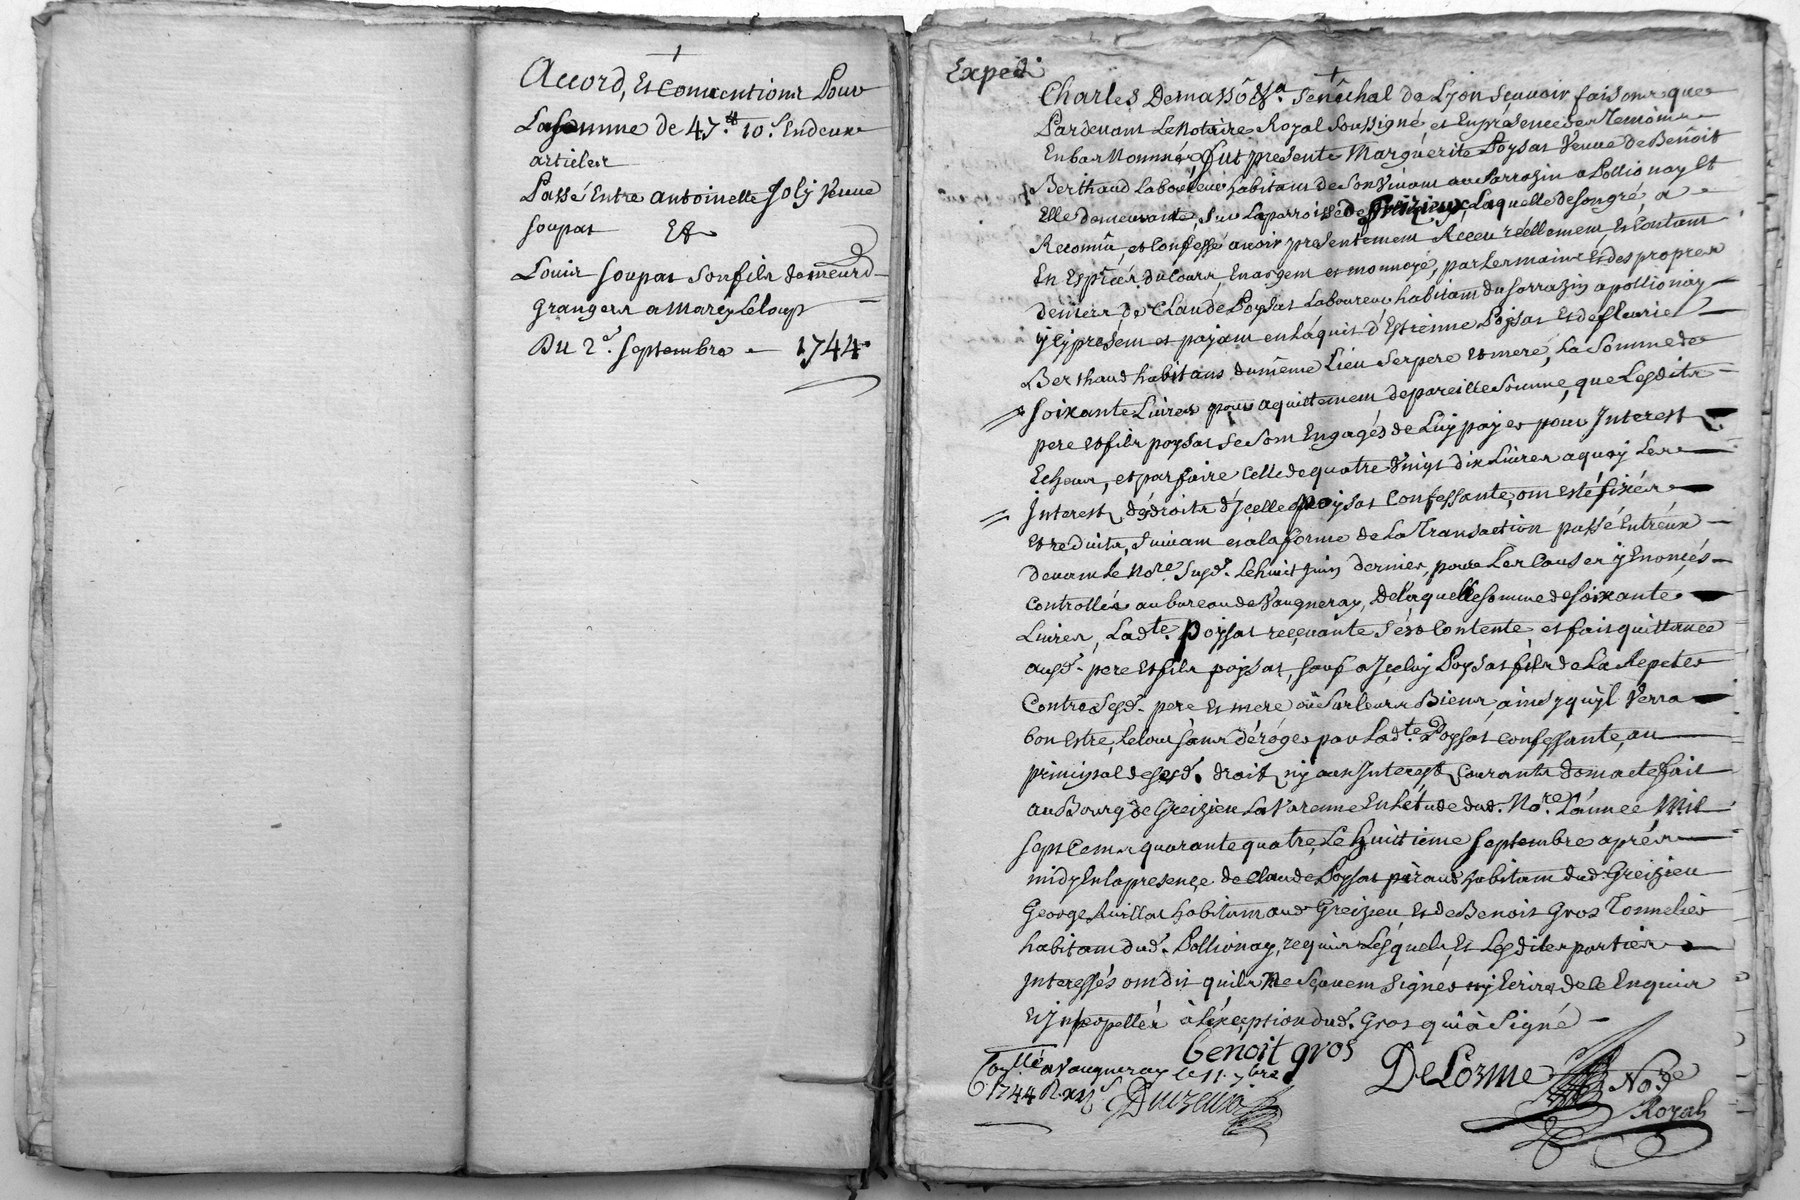 Accord, Et Conventions Pour
La somme de 47.lt 10.s En deux
articles
Passé Entre antoinette Joly veuve
soupat Et
Louis soupat son fils demeurd
Grangers a Marcy Le loup
Du 2e. septembre 1744.
Expedi
Charles Demasso &a. senéchal de Lyon sçavoir faisons que
Pardevant Le Notaire Royal soussigné, et En presence des Temoins
En bas Nommés, fut presente Marguerite Poysat veuve de Benoît
Berthaud Laboureur habitant de son vivant au sarrazin a Pollionay Et
Elle demeurante, sur La parroisse de Greizieu, Laquelle de son gré a
Reconnû, et Confessé avoir presentement Receu réellement, Et Contant
En Espèces du Cours, En argent et monnoye, par Les mains Et des propres
deniers de Claude Poysat Laboureur habitant du sarrazin a pollionay
jcy present et payant en L'aquit d'Estienne Poysat Et de fleurie
Berthaud habitans du même Lieu ses pere et mere, La Somme de
soixante Livres pour aquittement de pareille somme, que Lesdits
pere et fils poysat se sont Engagés de Luy payer pour Interest
Echeus, et parfaire celle de quatre vingt dix Livres a quoy Les
Interest des droits d'jcelle poysat Confessante, ont esté fixés
et reduits, suivant et a la forme de La Transaction passé Entr'eux
devant Le Nore. susd. Le huit juin dernier, pour Les Causes y Enoncés
controllée au bureau de vaugneray, de laquelle somme de soixante
Livres, Lad.te poysat recevante s'est Contente, et fait quittance
ausd. pere et fils poysat, sauf a Jceluy Poysat fils de La Repeter
contre sesd. pere et mere ou sur leurs Biens, ainsy qu'il verra
bon estre, Le tout sans déroger par Lad.te Poysat confessante, au
principal de sesd. droits, ny aux Interest Courants dont acte fait
au Bourg de Greizieu La Varenne En L'étude dud. Nore. L'année Mil
sept Cents quarante quatre, Le huitieme septembre après
midy En la presence de Claude Poysat habitant dud. Greizieu
George habitant aud. Greizieu Et de Benoit Gros Tonnelier
habitant dud. Pollionay, requis Lesquels, Et Lesdites parties
interessés ont dit qu'ils Ne sçavent signer ny Ecrire de ce Enquis
et Interpellés à L'éxception dud. Gros qui à Signé
Benoit gros
DeLorme Nore.
Royal
Con.llé a Vaugneray Le 11. 7bre
1744 R. xii s.